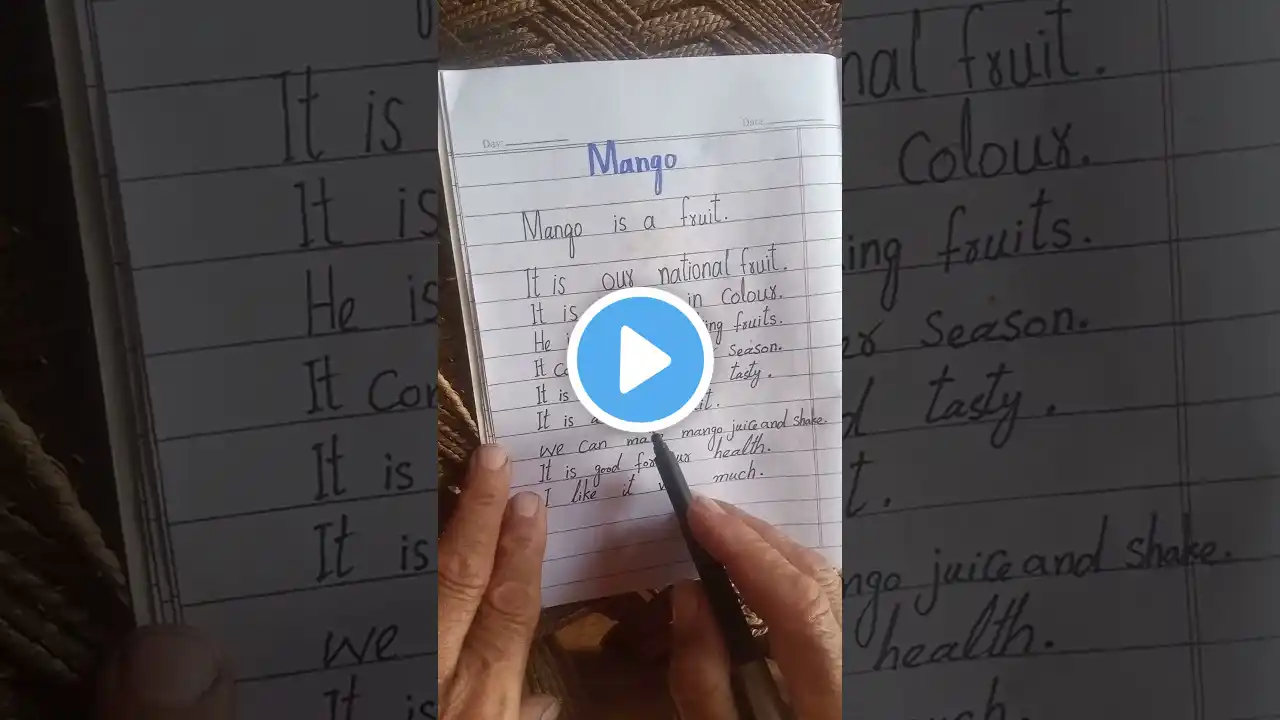 Day:
Date
Mango
Mango is a fruit.
It is our national fruit.
It is in Colour.
He fruits.
It season.
It is tasty.
It is
we can mango juice and shake.
It is good for our health.
I like it much.